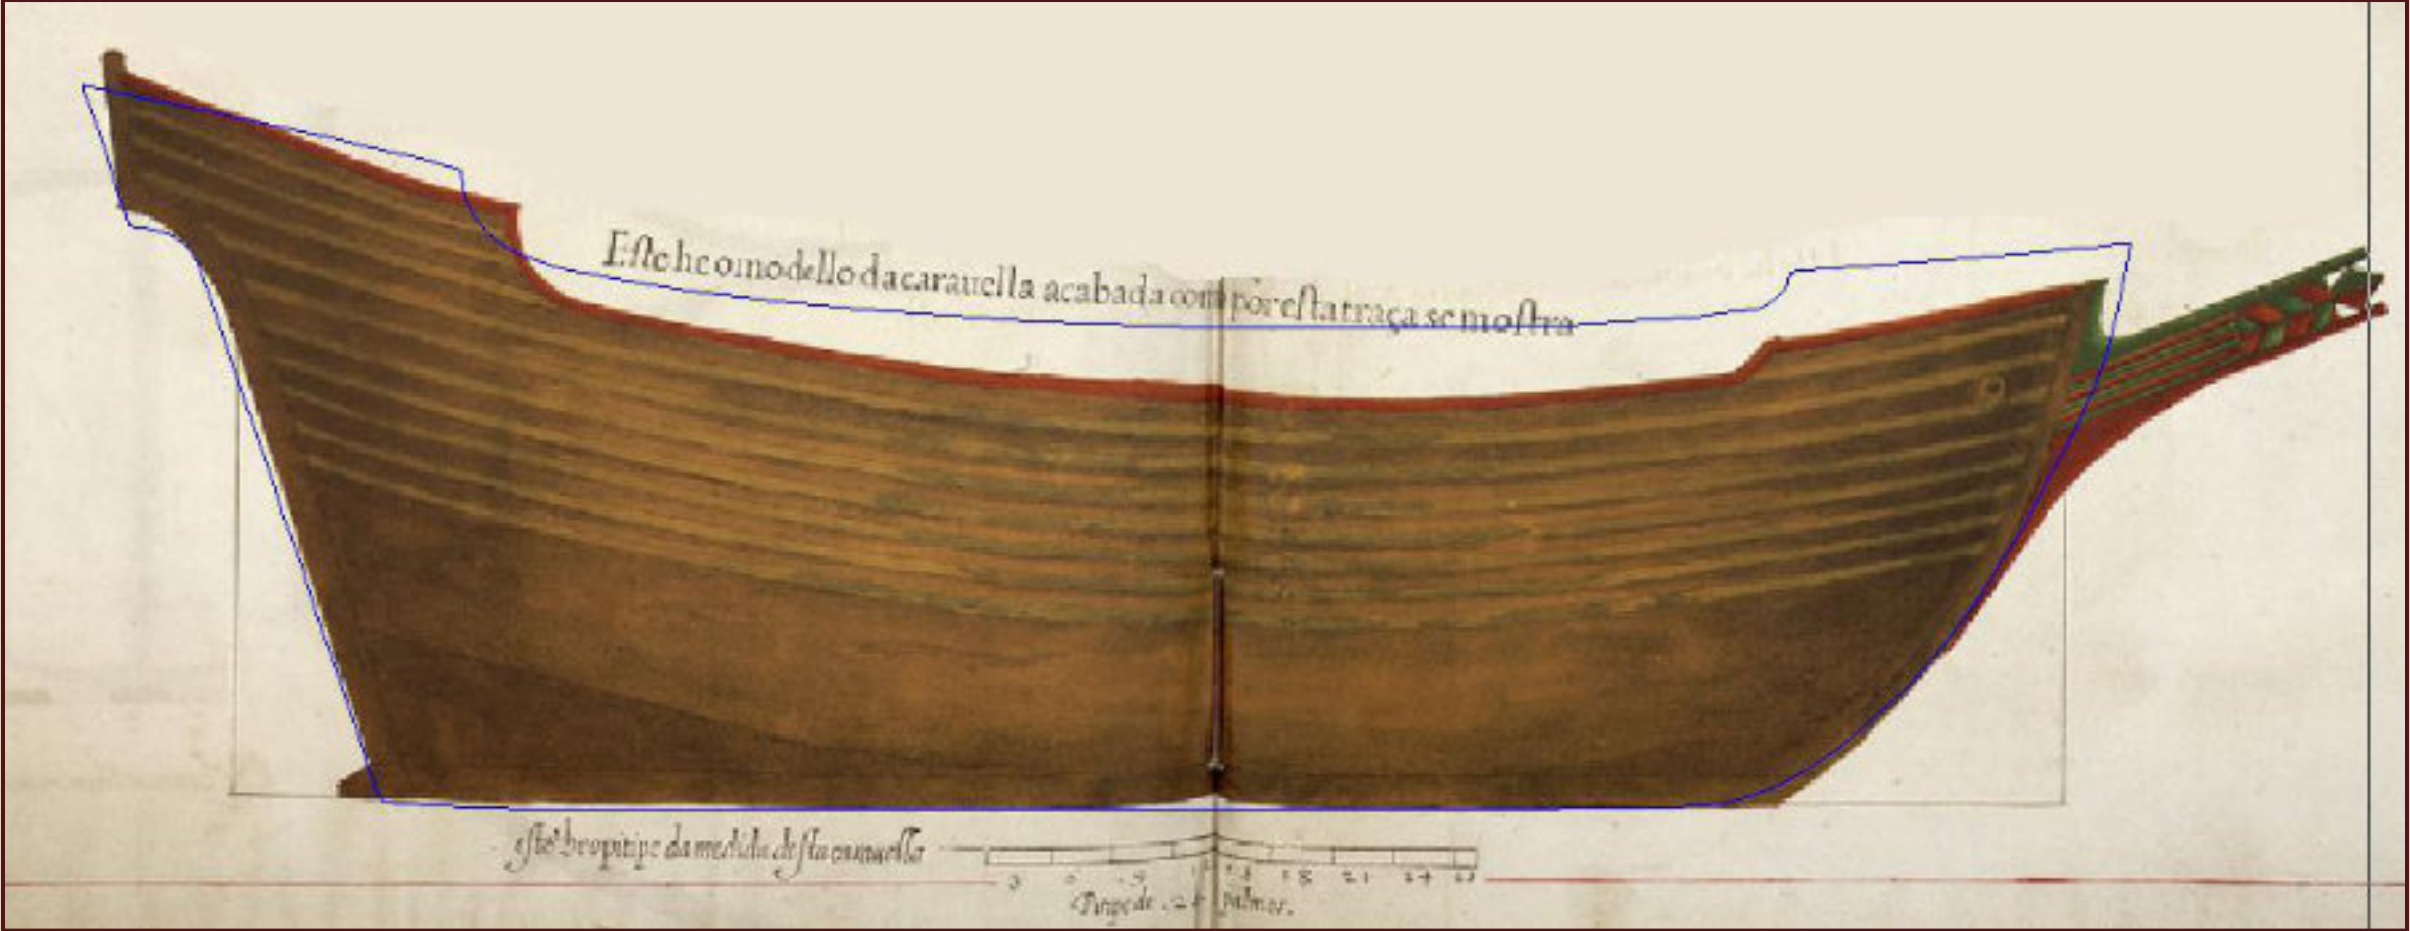 Este he o modello da carauella acabada com por esta traça se mostra
este he o pitipe da medida desta carauella
18 21 24
Pitipe de palmos.